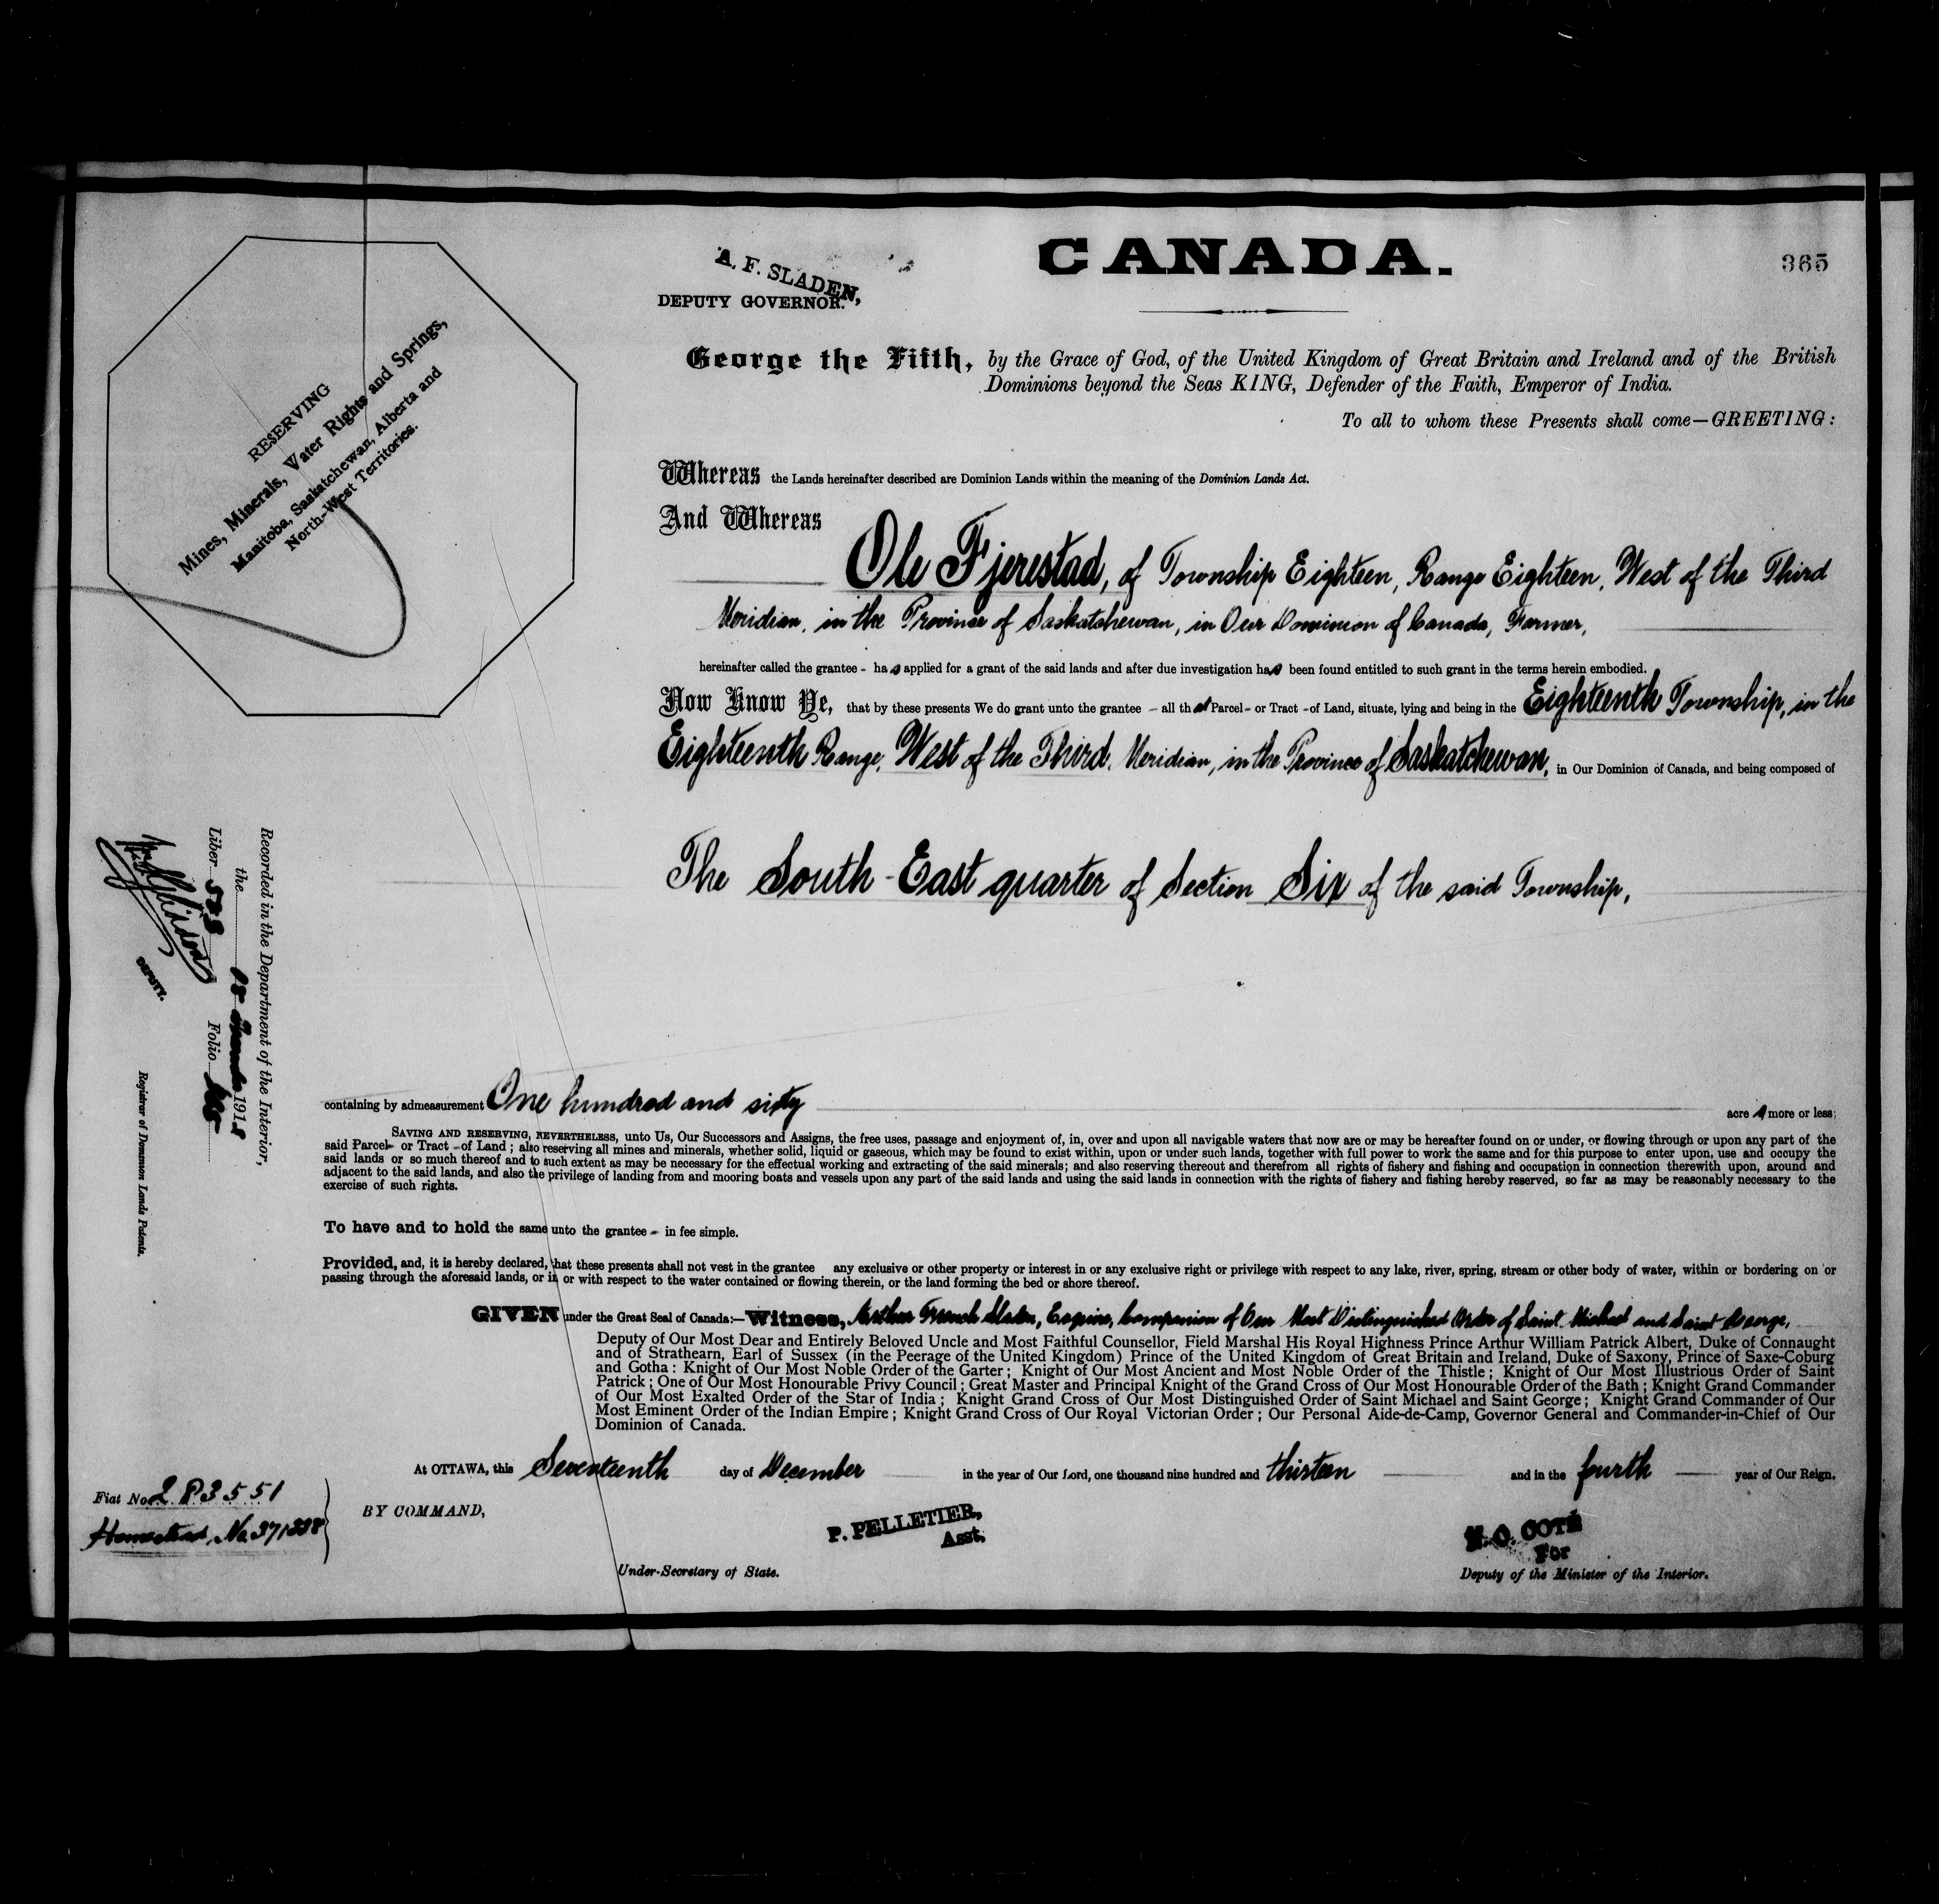 CANADA.
365
A. F. SLADEN,
DEPUTY GOVERNOR.
George the Fifth, by the Grace of God, of the United Kingdom of Great Britain and Ireland and of the British
Dominions beyond the Seas KING, Defender of the Faith, Emperor of India.
To all to whom these Presents shall come—GREETING:
RESERVING
Mines, Minerals, Water Rights and Springs,
Manitoba, Saskatchewan, Alberta and
North-West Territories.
Whereas the Lands hereinafter described are Dominion Lands within the meaning of the Dominion Lands Act.
And Whereas
Ole Fjerestad, of Township Eighteen, Range Eighteen, West of the Third
Meridian, in the Province of Saskatchewan, in Our Dominion of Canada, Farmer,
hereinafter called the grantee - has applied for a grant of the said lands and after due investigation has been found entitled to such grant in the terms herein embodied.
Now Know Ye, that by these presents We do grant unto the grantee - all that Parcel - or Tract - of Land, situate, lying and being in the Eighteenth Township, in the
Eighteenth Range, West of the Third Meridian, in the Province of Saskatchewan, in Our Dominion of Canada, and being composed of
The South-East quarter of Section Six of the said Township,
containing by admeasurement One hundred and sixty acres more or less;
SAVING AND RESERVING, NEVERTHELESS, unto Us, Our Successors and Assigns, the free uses, passage and enjoyment of, in, over and upon all navigable waters that now are or may be hereafter found on or under, or flowing through or upon any part of the
said Parcel - or Tract - of Land; also reserving all mines and minerals, whether solid, liquid or gaseous, which may be found to exist within, upon or under such lands, together with full power to work the same and for this purpose to enter upon, use and occupy the
said lands or so much thereof and to such extent as may be necessary for the effectual working and extracting of the said minerals; and also reserving thereout and therefrom all rights of fishery and fishing and occupation in connection therewith upon, around and
adjacent to the said lands, and also the privilege of landing from and mooring boats and vessels upon any part of the said lands and using the said lands in connection with the rights of fishery and fishing hereby reserved, so far as may be reasonably necessary to the
exercise of such rights.
To have and to hold the same unto the grantee - in fee simple.
Provided, and, it is hereby declared, that these presents shall not vest in the grantee any exclusive or other property or interest in or any exclusive right or privilege with respect to any lake, river, spring, stream or other body of water, within or bordering on or
passing through the aforesaid lands, or in or with respect to the water contained or flowing therein, or the land forming the bed or shore thereof.
GIVEN under the Great Seal of Canada:—Witness, Arthur French Sladen, Esquire, Companion of Our Most Distinguished Order of Saint Michael and Saint George,
Deputy of Our Most Dear and Entirely Beloved Uncle and Most Faithful Counsellor, Field Marshal His Royal Highness Prince Arthur William Patrick Albert, Duke of Connaught
and of Strathearn, Earl of Sussex (in the Peerage of the United Kingdom) Prince of the United Kingdom of Great Britain and Ireland, Duke of Saxony, Prince of Saxe-Coburg
and Gotha: Knight of Our Most Noble Order of the Garter; Knight of Our Most Ancient and Most Noble Order of the Thistle; Knight of Our Most Illustrious Order of Saint
Patrick; One of Our Most Honourable Privy Council; Great Master and Principal Knight of the Grand Cross of Our Most Honourable Order of the Bath; Knight Grand Commander
of Our Most Exalted Order of the Star of India; Knight Grand Cross of Our Most Distinguished Order of Saint Michael and Saint George; Knight Grand Commander of Our
Most Eminent Order of the Indian Empire; Knight Grand Cross of Our Royal Victorian Order; Our Personal Aide-de-Camp, Governor General and Commander-in-Chief of Our
Dominion of Canada.
At OTTAWA, this Seventeenth day of December in the year of Our Lord, one thousand nine hundred and thirteen and in the fourth year of Our Reign.
BY COMMAND,
P. PELLETIER,
Asst.
Under-Secretary of State.
N. O. COTÉ
For
Deputy of the Minister of the Interior.
Fiat No. 283551
Homestead No.
Recorded in the Department of the Interior,
the 191
Liber Folio
DEPUTY.
Registrar of Dominion Lands Patents.